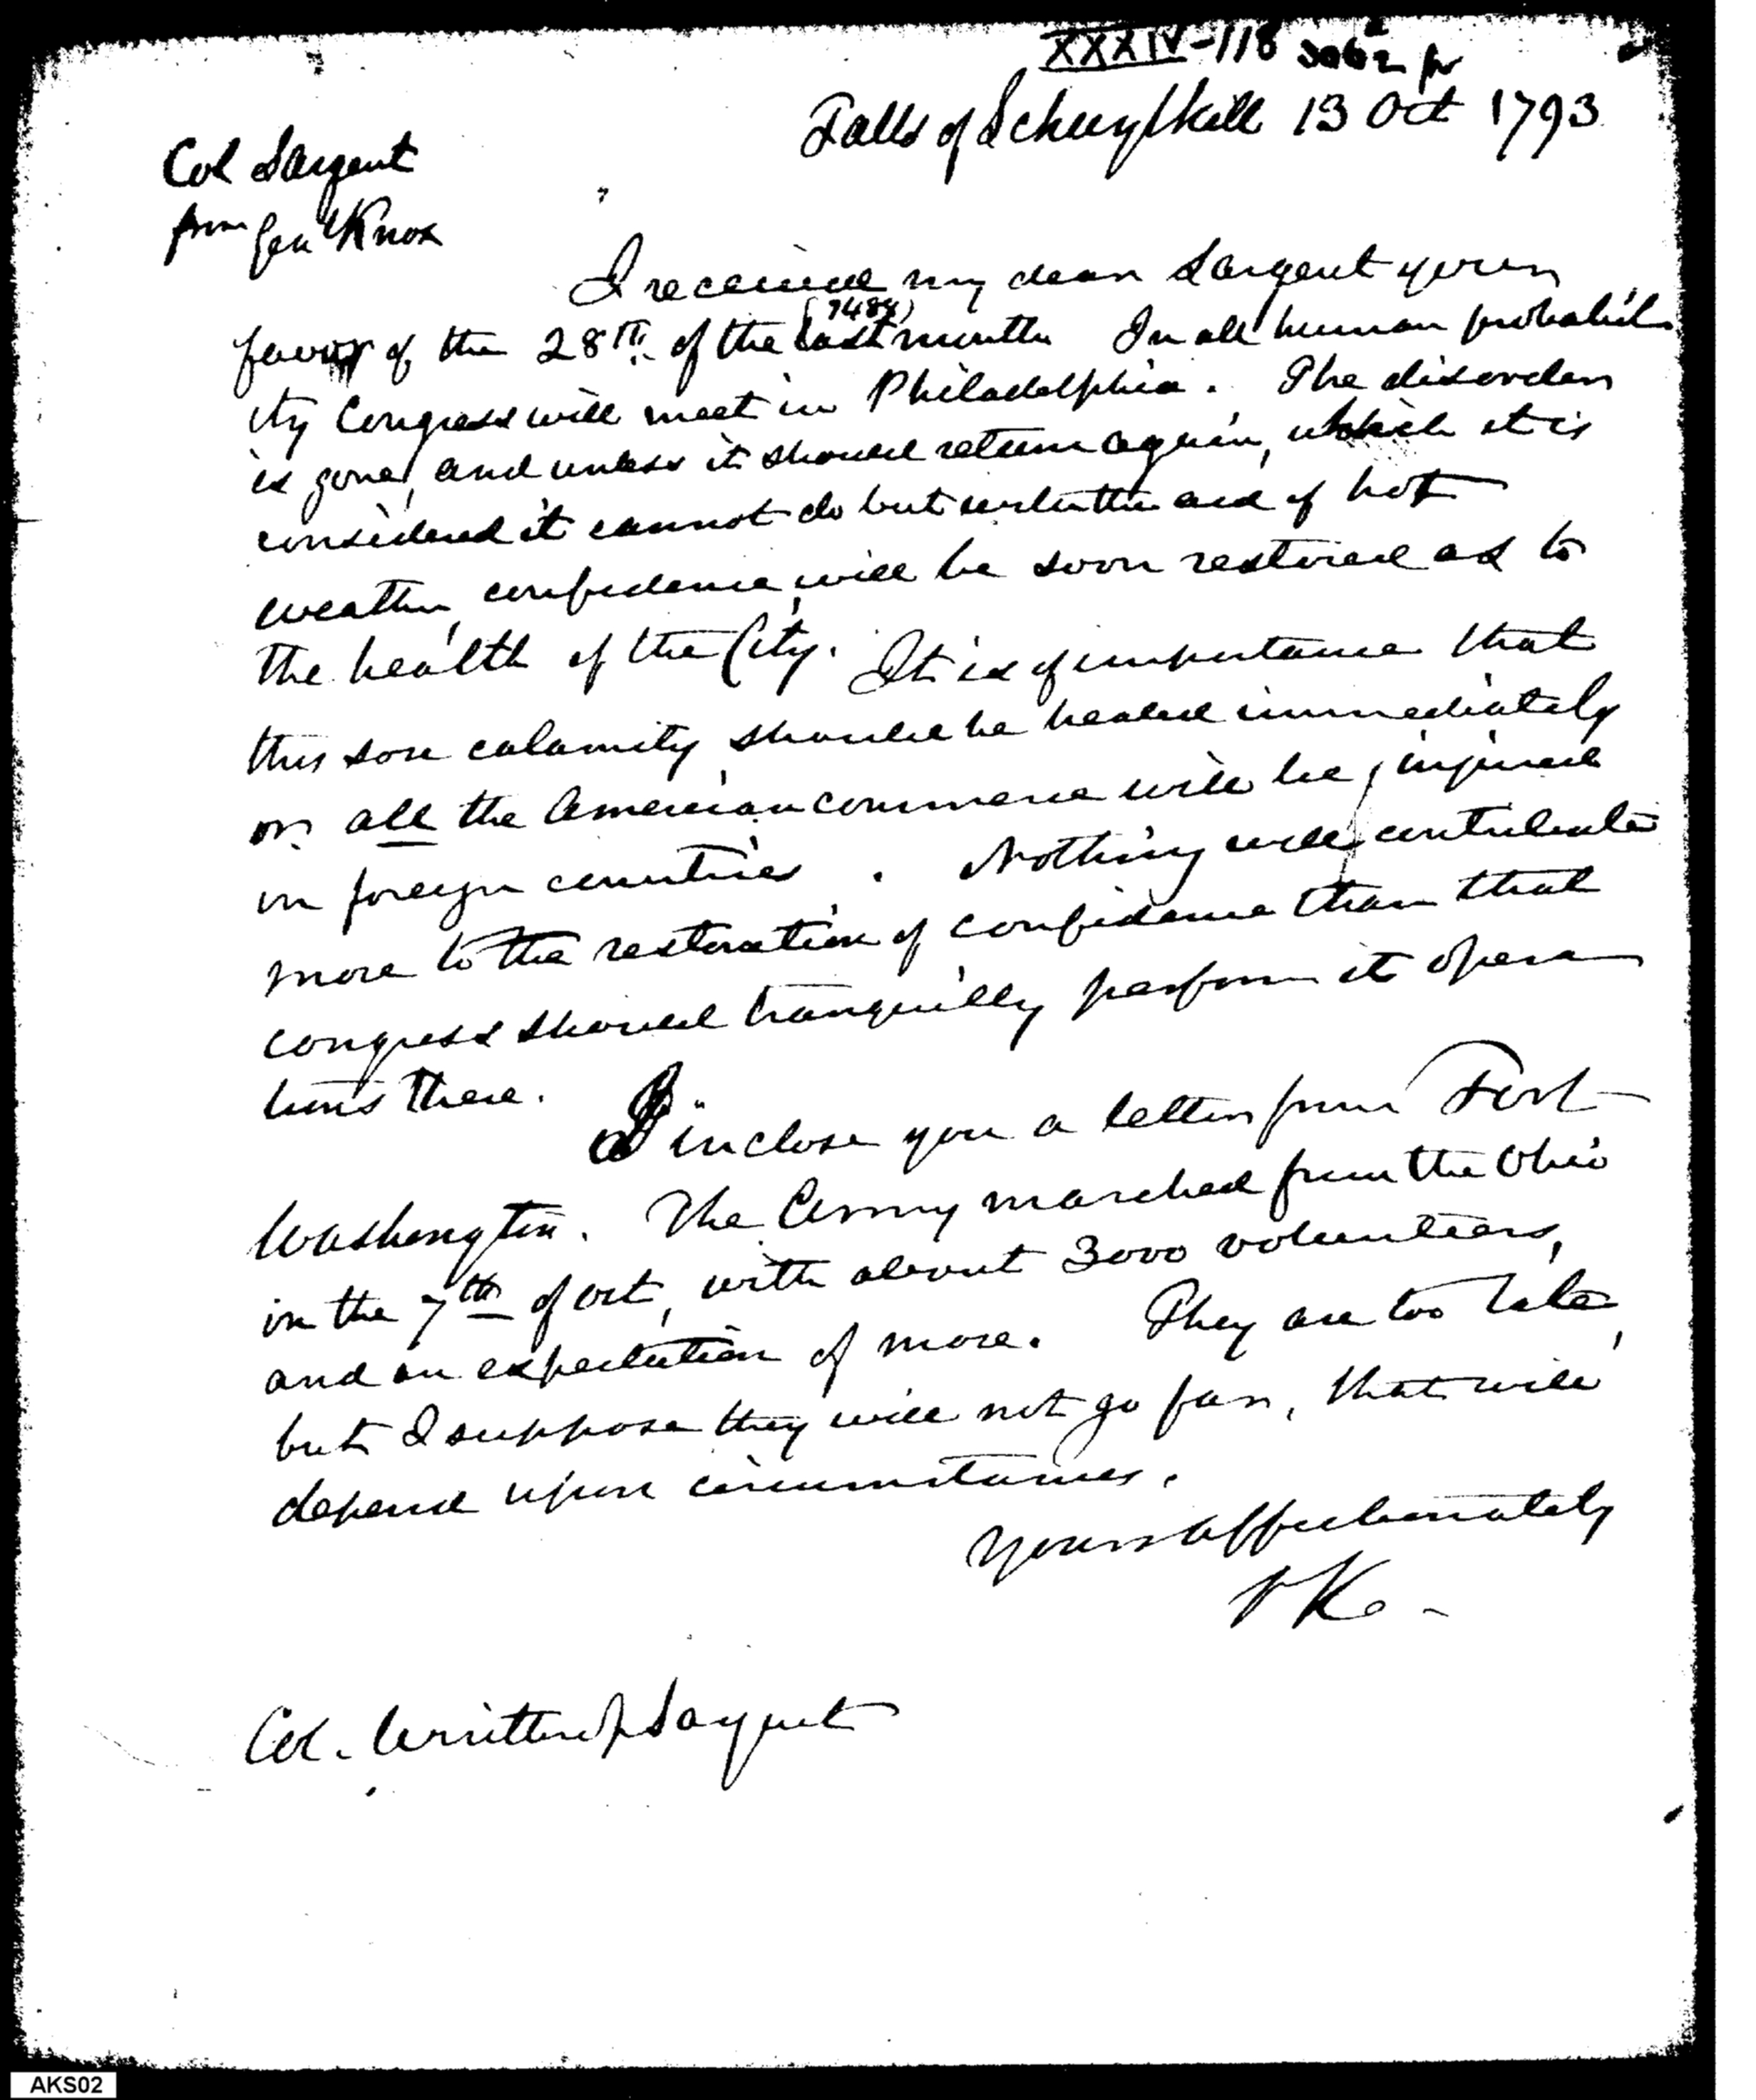 XXXIV-118
Falls of Schuylkill 13 Oct 1793
Col Sargent
from Genl Knox
I received my dear Sargent your
favor of the 28th. of the last month In all human probabil
(7484)
ity Congress will meet in Philadelphia. The disorder
is gone, and unless it should return again, which it is
considered it cannot do but with the aid of hot
weather, confidence, will be soon restored as to
the health of the City. It is of importance that
this sore calamity should be healed immediately
or all the American commerce will be injured
in foreign countries. Nothing will contribute
more to the restoration of confidence than that
congress should tranquilly perform its opera
tions there.
I inclose you a letter from Fort
Washington. The Army marched from the Ohio
on the 7th of oct, with about 3000 volunteers,
and an expectation of more. They are too late,
but I suppose they will not go far, that will
depend upon circumstances.
Yours affectionately
HK-
Col. Winthrop Sargent
AKS02